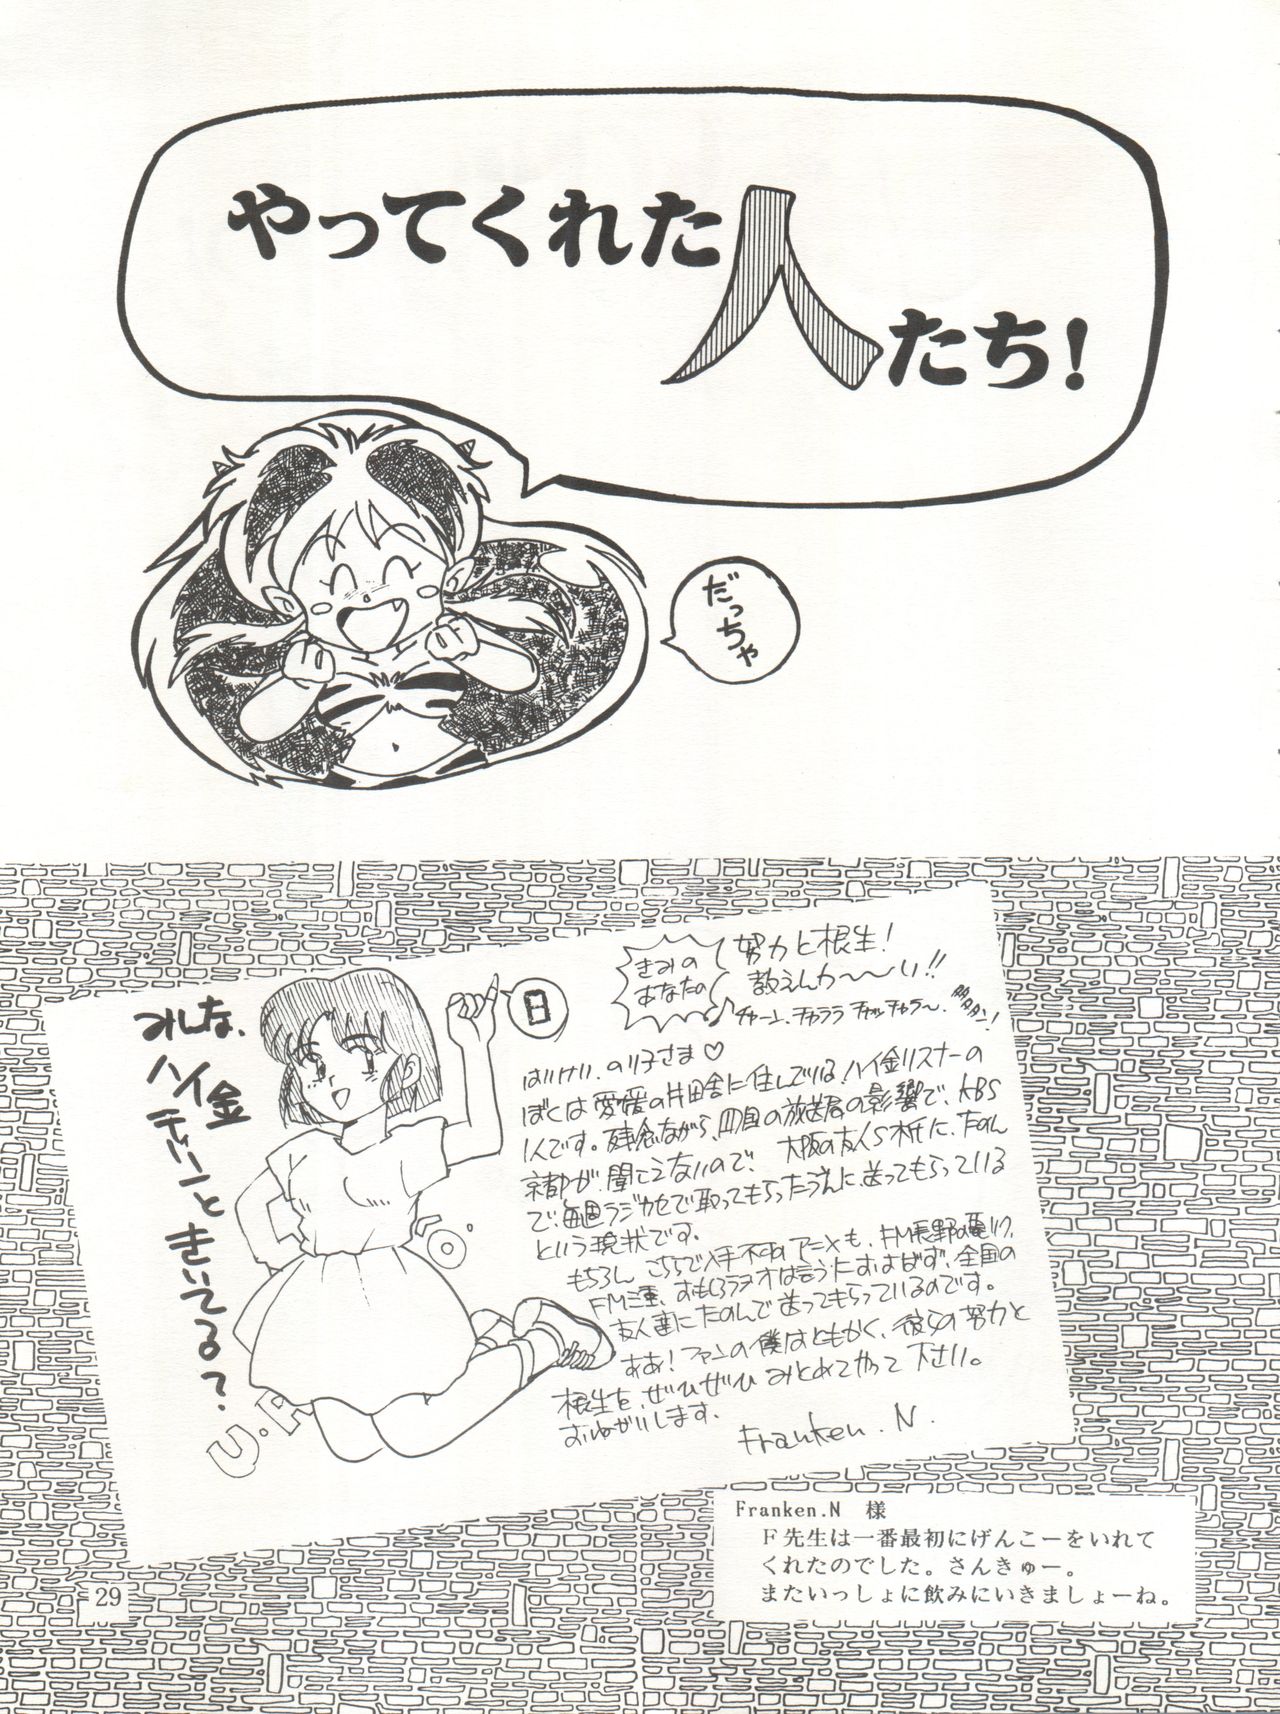 やってくれた
人たち!
だっちゃ
みんな、
ハイ金
きいてる?
日
きみの
あなたの
努力と根生!
教えんか〜〜い!!
チャーン、チャララ チャッチャラ〜、
はいけい、のり子さま♡
ぼくは愛媛の片田舎に住んでいる、ハイ金リスナーの
1人です。残念ながら、四国の放送局の影響で、KBS
京都が、聞こえないので、大阪の友人S木氏に、たのん
で、毎週ラジカセで取ってもらったうえに、送ってもらっている
という現状です。
もちろん、こちらで入手不可のアニメも、FM長野の
FM三重、すもじろラヂオは言うにおよばず、全国の
友人達にたのんで送ってもらっているのです。
ああ!ファンの僕はともかく、彼らの努力と
根生を、ぜひぜひ みとめてやって 下さい。
おねがいします。
Franken.N.
U.F
Franken.N 様
F先生は一番最初にげんこーをいれて
くれたのでした。さんきゅー。
またいっしょに飲みにいきましょーね。
29